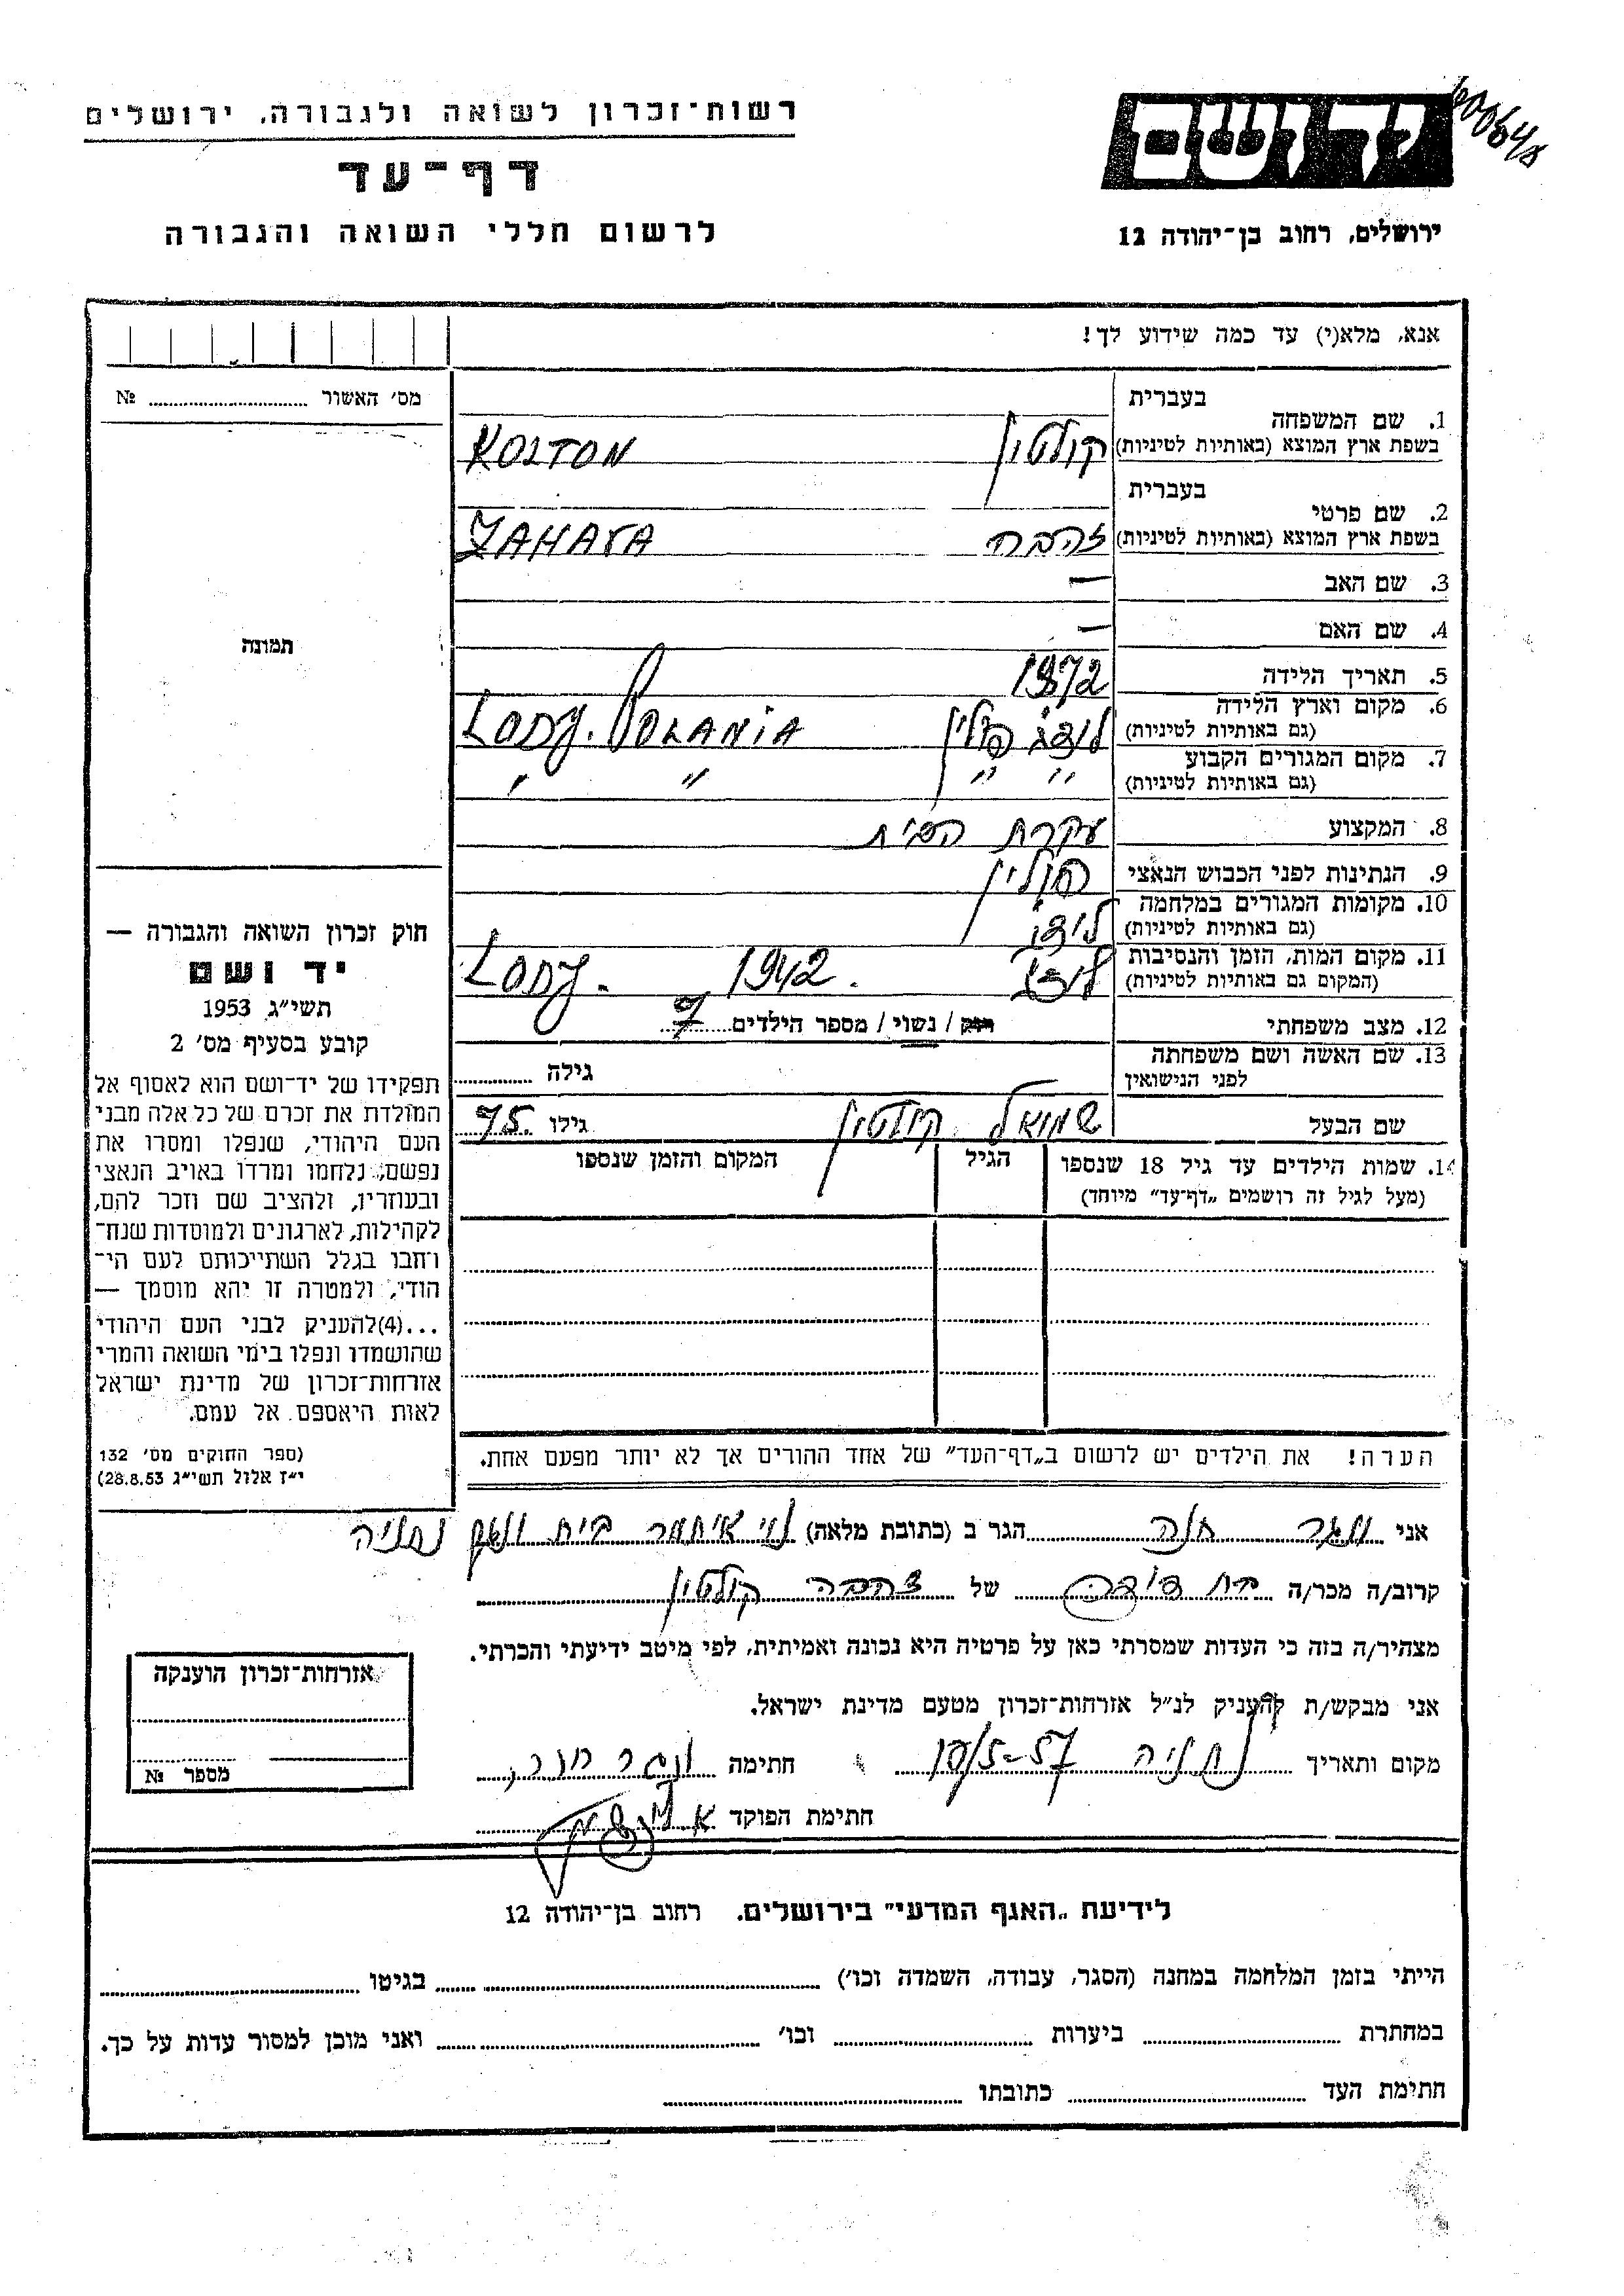 רשות־זכרון לשואה ולגבורה, ירושלים
דף־עד
לרשום חללי השואה והגבורה
יד ושם
ירושלים, רחוב בן־יהודה 12
אנא, מלא(י) עד כמה שידוע לך!
מס׳ האשור № 
תמונה
1. שם המשפחה בעברית
קולטון KOLTON
בשפת ארץ המוצא (באותיות לטיניות)
2. שם פרטי בעברית
זהבה ZAHAVA
בשפת ארץ המוצא (באותיות לטיניות)
3. שם האב —
4. שם האם —
5. תאריך הלידה
6. מקום וארץ הלידה
(גם באותיות לטיניות) לודז פולין LODZ. POLANIA
7. מקום המגורים הקבוע
(גם באותיות לטיניות) " " " "
8. המקצוע עקרת הבית
9. הנתינות לפני הכבוש הנאצי פולין
10. מקומות המגורים במלחמה
(גם באותיות לטיניות) לודז
11. מקום המות, הזמן והנסיבות
(המקום גם באותיות לטיניות) לודז 1942. LODZ.
12. מצב משפחתי רוק / נשוי / מספר הילדים 7
13. שם האשה ושם משפחתה
לפני הנישואין גילה
שם הבעל שמואל קולטון גילו 75
14. שמות הילדים עד גיל 18 שנספו הגיל המקום והזמן שנספו
(מעל לגיל זה רושמים „דף־עד” מיוחד)
הערה! את הילדים יש לרשום ב„דף־העד” של אחד ההורים אך לא יותר מפעם אחת.
חוק זכרון השואה והגבורה —
יד ושם
תשי״ג 1953
קובע בסעיף מס׳ 2
תפקידו של יד־ושם הוא לאסוף אל
המולדת את זכרם של כל אלה מבני
העם היהודי, שנפלו ומסרו את
נפשם, נלחמו ומרדו באויב הנאצי
ובעוזריו, ולהציב שם וזכר להם,
לקהילות, לארגונים ולמוסדות שנח־
רחבו בגלל השתייכותם לעם הי־
הודי, ולמטרה זו יהא מוסמך —
...(4)להעניק לבני העם היהודי
שהושמדו ונפלו בימי השואה והמרי
אזרחות־זכרון של מדינת ישראל
לאות היאספם אל עמם.
(ספר החוקים מס׳ 132
י״ז אלול תשי״ג 28.8.53)
אני חנה הגר ב (כתובת מלאה) נוי איתמר בית נתניה
קרוב/ה מכר/ה בת דודה של זהבה קולטון
מצהיר/ה בזה כי העדות שמסרתי כאן על פרטיה היא נכונה ואמיתית, לפי מיטב ידיעתי והכרתי.
אני מבקש/ת להעניק לנ״ל אזרחות־זכרון מטעם מדינת ישראל.
מקום ותאריך נתניה 10/5-57 חתימה
חתימת הפוקד
אזרחות־זכרון הוענקה
מספר №
לידיעת „האגף המדעי” בירושלים. רחוב בן־יהודה 12
הייתי בזמן המלחמה במחנה (הסגר, עבודה, השמדה וכו׳) בגיטו
במחתרת ביערות וכו׳ ואני מוכן למסור עדות על כך.
חתימת העד כתובתו